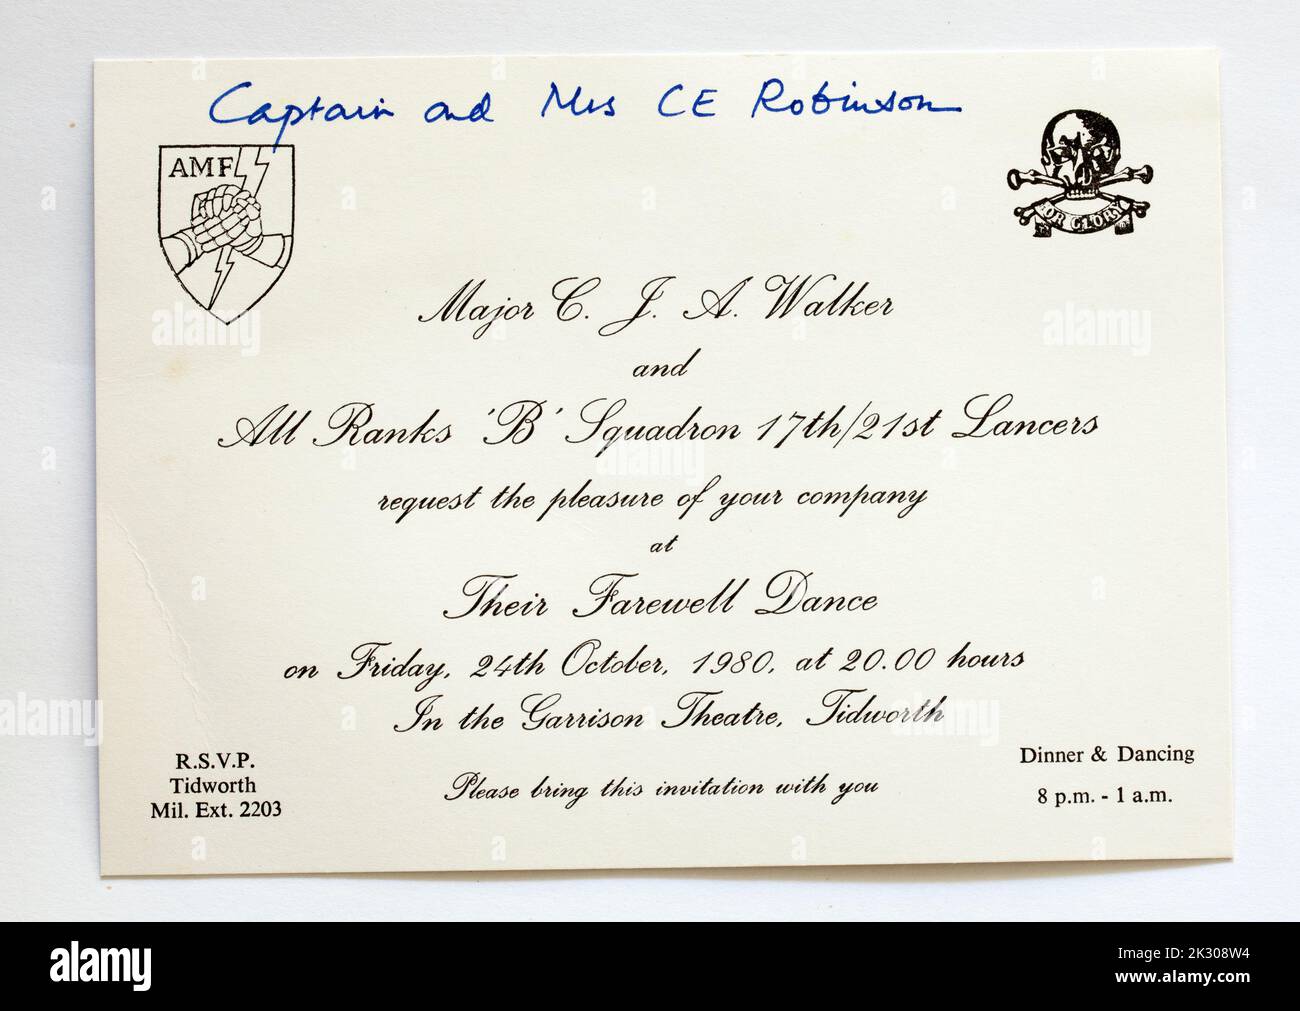 Captain and Mrs CE Robinson
AMF
OR GLORY
Major C. J. A. Walker
and
All Ranks 'B' Squadron 17th/21st Lancers
request the pleasure of your company
at
Their Farewell Dance
on Friday, 24th October, 1980, at 20.00 hours
In the Garrison Theatre, Tidworth
R.S.V.P.
Tidworth
Mil. Ext. 2203
Please bring this invitation with you
Dinner & Dancing
8 p.m. - 1 a.m.
alamy
Image ID: 2K308W4
www.alamy.com